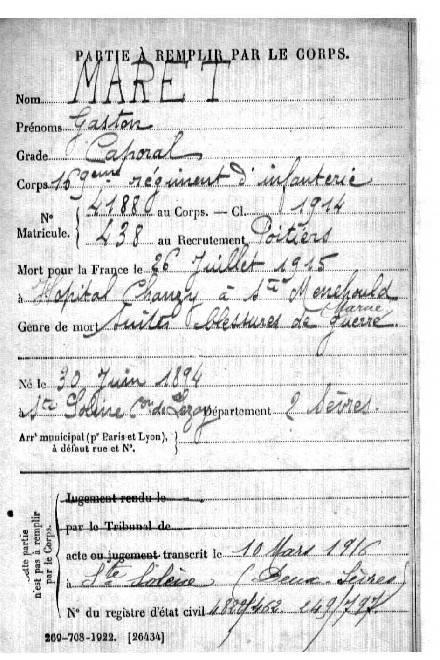 PARTIE À REMPLIR PAR LE CORPS.
Nom MARET
Prénoms Gaston
Grade Caporal
Corps 169eme régiment d'infanterie
N° Matricule. { 41880 au Corps. — Cl. 1914
438 au Recrutement Poitiers
Mort pour la France le 26 Juillet 1915
à Hopital Chanzy à Ste Menehould
(Marne)
Genre de mort Suites blessures de guerre.
Né le 30 Juin 1894
à Ste Soline Département 2 Sèvres.
Arrt municipal (pr Paris et Lyon), à défaut rue et N°. }
Cette partie n'est pas à remplir par le Corps.
Jugement rendu le
par le Tribunal de
acte ou jugement transcrit le 10 Mars 1916
à Ste Soline (Deux-Sèvres)
N° du registre d'état civil
269-708-1922. [26434]